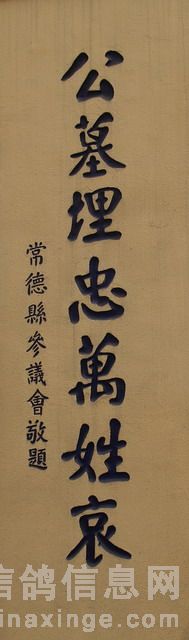 公墓埋忠萬姓哀
常德縣參議會敬題
信鸽信息网
inaxinge.com